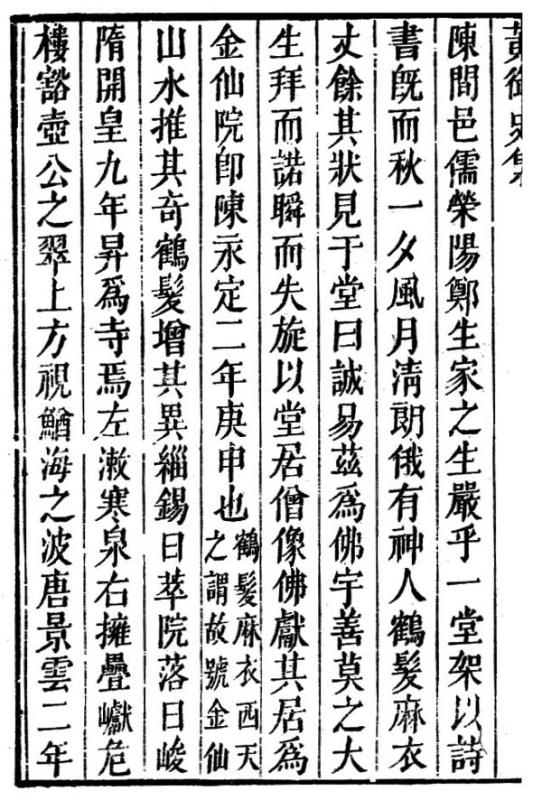 黃御史集
陳間邑儒榮陽鄭生家之生嚴乎一堂架以詩
書既而秋一夕風月清朗俄有神人鶴髮麻衣
丈餘其狀見于堂曰誠易茲爲佛宇善莫之大
生拜而諾瞬而失旋以堂居僧像佛獻其居爲
金仙院卽陳永定二年庚申也鶴髮麻衣西天
之謂故號金仙
山水推其奇鶴髮增其異緇錫日萃院落日峻
隋開皇九年昇爲寺焉左漱寒泉右擁疊巘危
樓豁壺公之翠上方視鰌海之波唐景雲二年